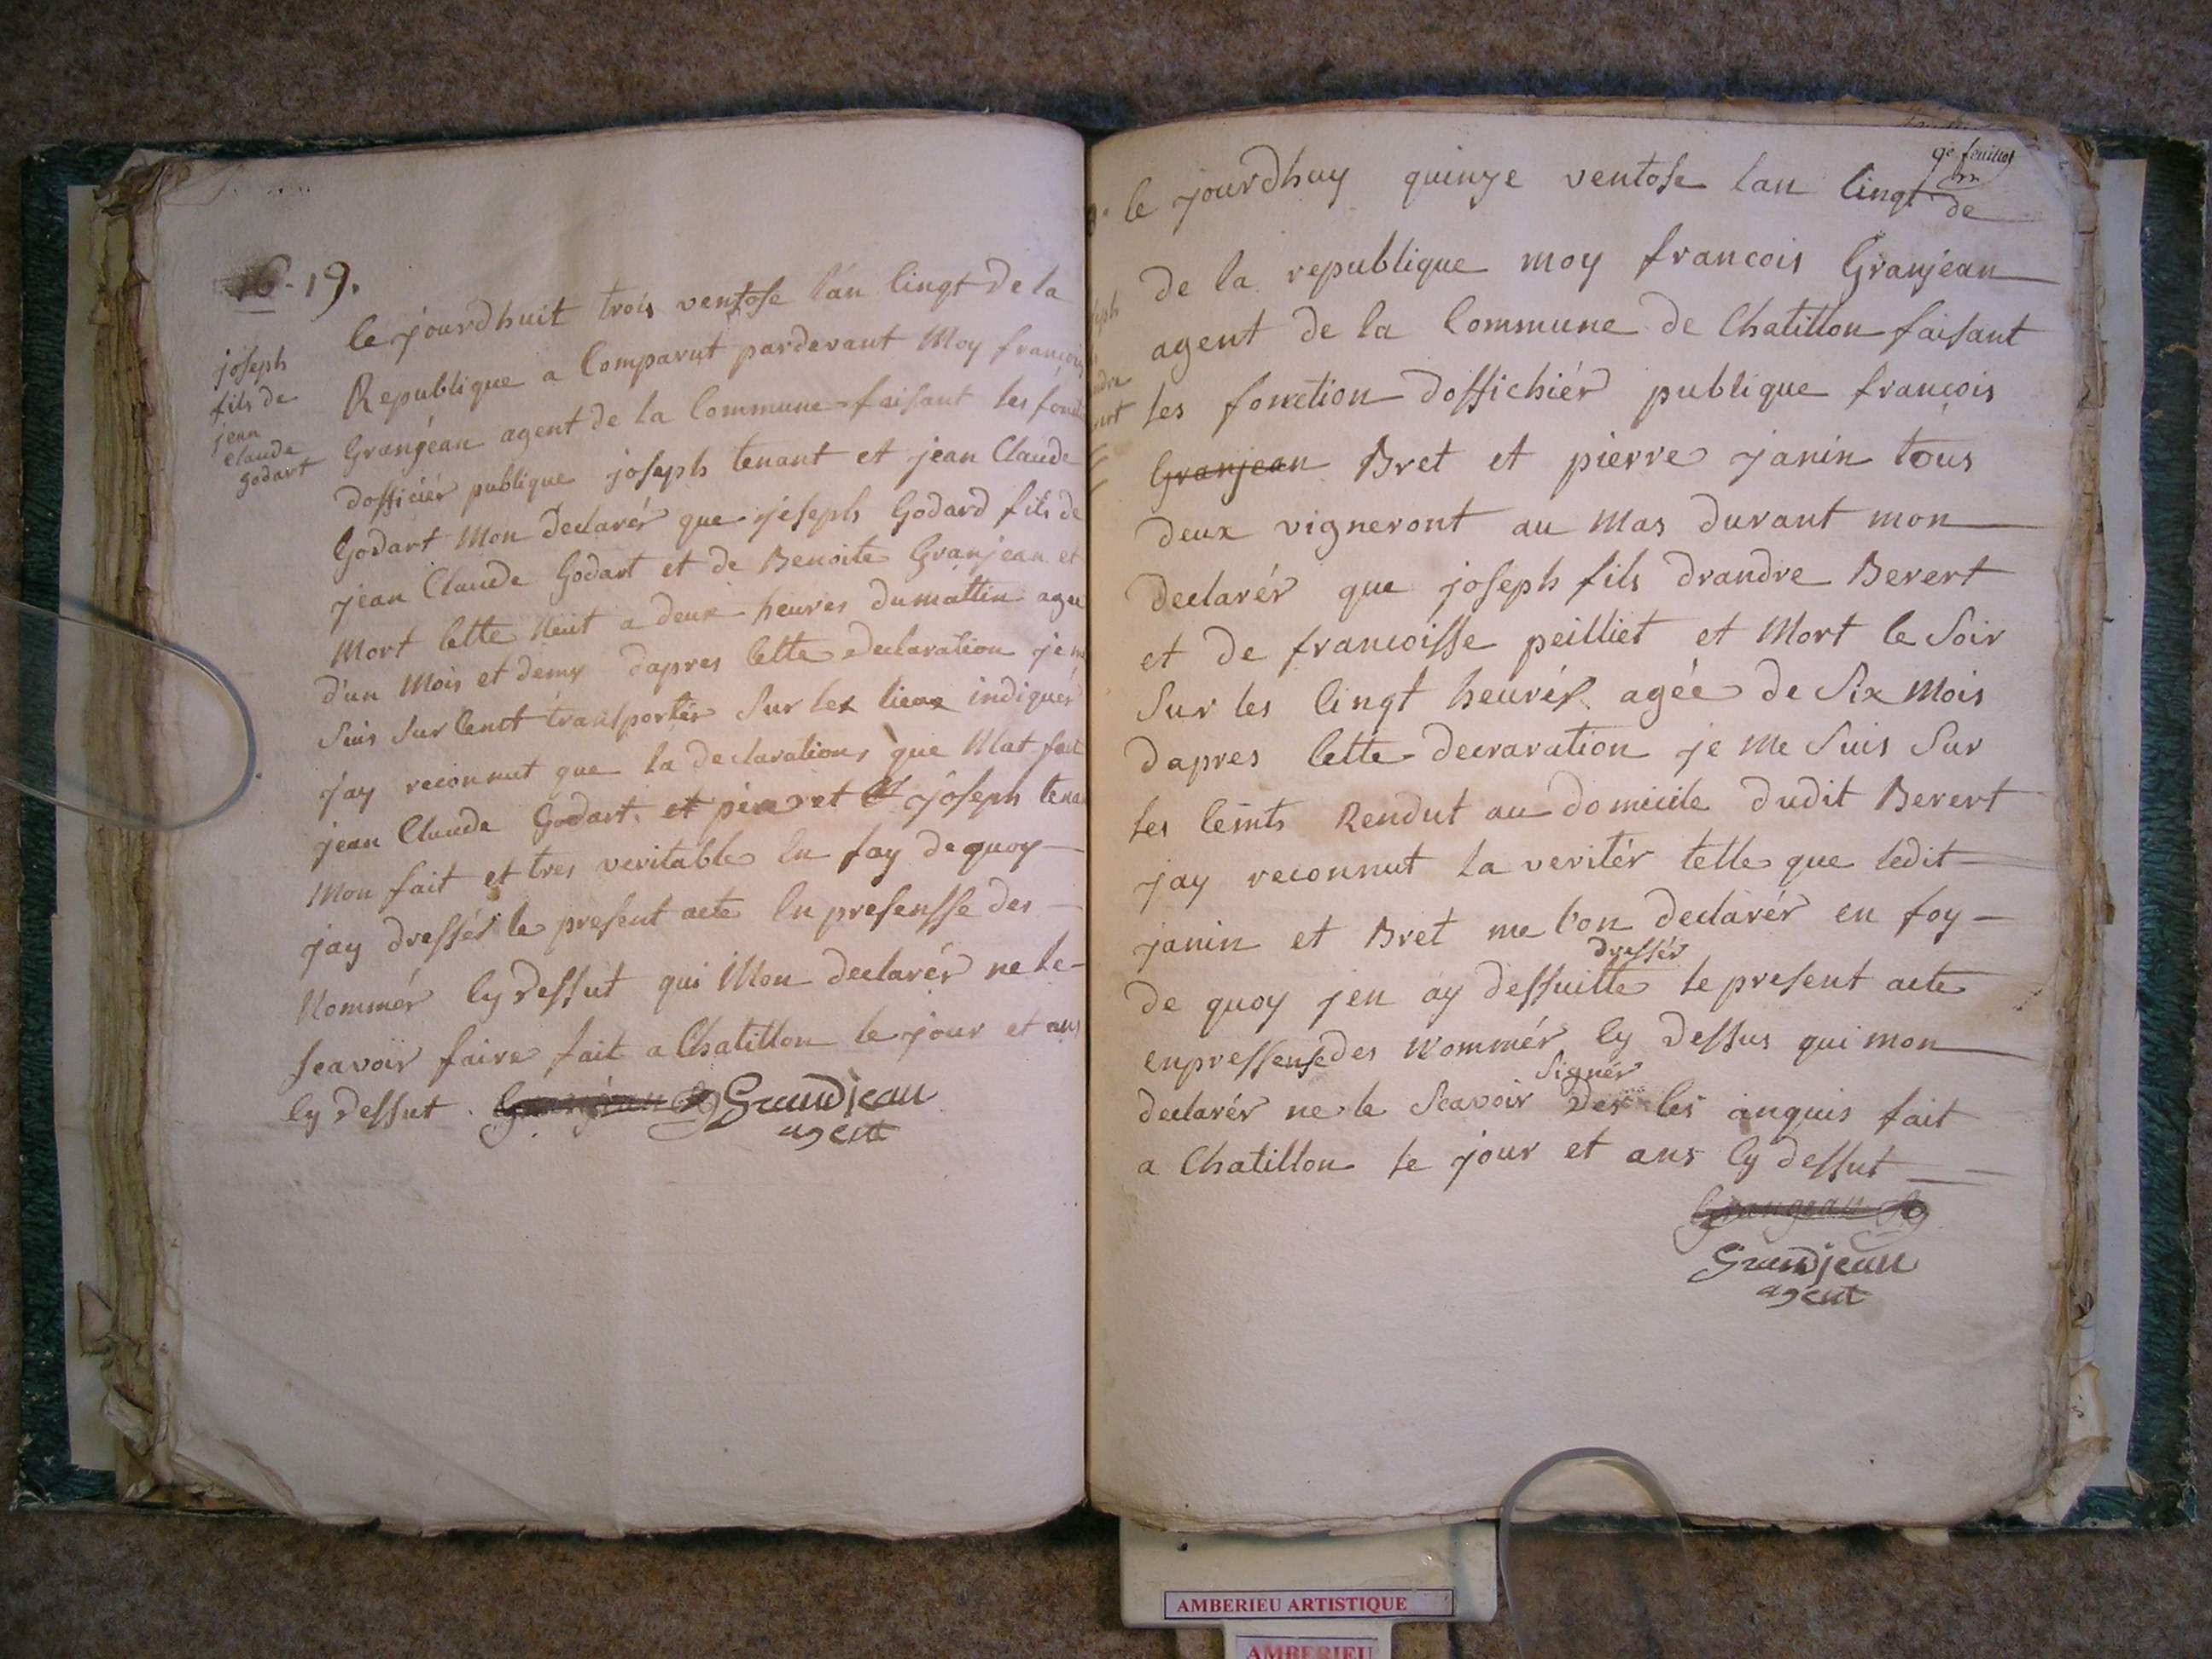 19.
joseph
fils de
jean
claude
godart
le jourdhuit trois ventose l'an Cinqt de la
Republique a Comparut pardevant Moy françois
Granjean agent de la Commune faisant les
dofficiér publique joseph tenant et jean Claude
Godart Mon Declarér que joseph Godard fils de
jean Claude Godart et de Benoite Granjean et
Mort Cette Neuit a deux heures dumattin agee
d'un Mois et demy dapres Cette declaration je
Suis Sur Cenot transportér Sur les lieux indiquér
jay reconnut que la declarations que Mat fait
jean Claude Godart et joseph
Mon fait et tres veritable En foy de quoy
jay dressér le present acte En presensse des
Nommér Cy dessut qui Mon declarér ne le
scavoir faire fait a Chatillon le jour et ans
Cy dessut. Granjean Grandjean
agent
feuillet
le jourdhuy quinze ventose lan Cinqt de
de la republique moy francois Granjean
agent de la Commune de Chatillon faisant
les fonction doffichiér publique françois
Granjean Bret et pierre janin tous
deux vigneront au Mas durant mon
declarér que joseph fils drandre Berert
et de francoisse peilliet et Mort le Soir
Sur les Cinqt heurér agée de Six Mois
dapres Cette decraration je Me Suis Sur
les Ceints Rendut au domicile dudit Berert
jay reconnut la veritér telle que ledit
janin et Bret me l'on declarér en foy
dressér
de quoy jen ay dessuitte le present acte
enpressense des Nommér Cy dessus qui mon
Signér
declarér ne le Scavoir des les anquis fait
a Chatillon le jour et ans Cy dessut
Grangean
Grandjean
agent
AMBERIEU ARTISTIQUE
AMBERIEU